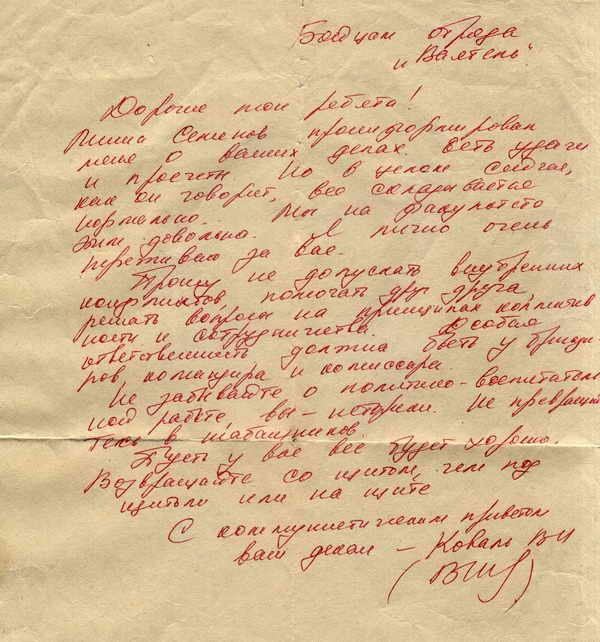 Бойцам отряда
и "Ваятель"
Дорогие мои ребята!
Миша Семенов проинформировал
меня о ваших делах. Есть удачи
и просчеты. Но в целом сейчас,
как он говорит, все складывается
нормально. Мы на факультете
этим довольны. Я лично очень
переживаю за вас.
Прошу не допускать внутренних
конфликтов, помогать друг другу,
решать вопросы на принципах коллектив
ности и сотрудничества. Особая
ответственность должна быть у бригади
ров, командира и комиссара.
Не забывайте о политико-воспитатель
ной работе, вы – историки. Не превращай
тесь в шабашников.
Пусть у вас все будет хорошо.
Возвращайтесь со щитом, чем под
щитом или на щите
С коммунистическим приветом
ваш декан – Коваль ВИ